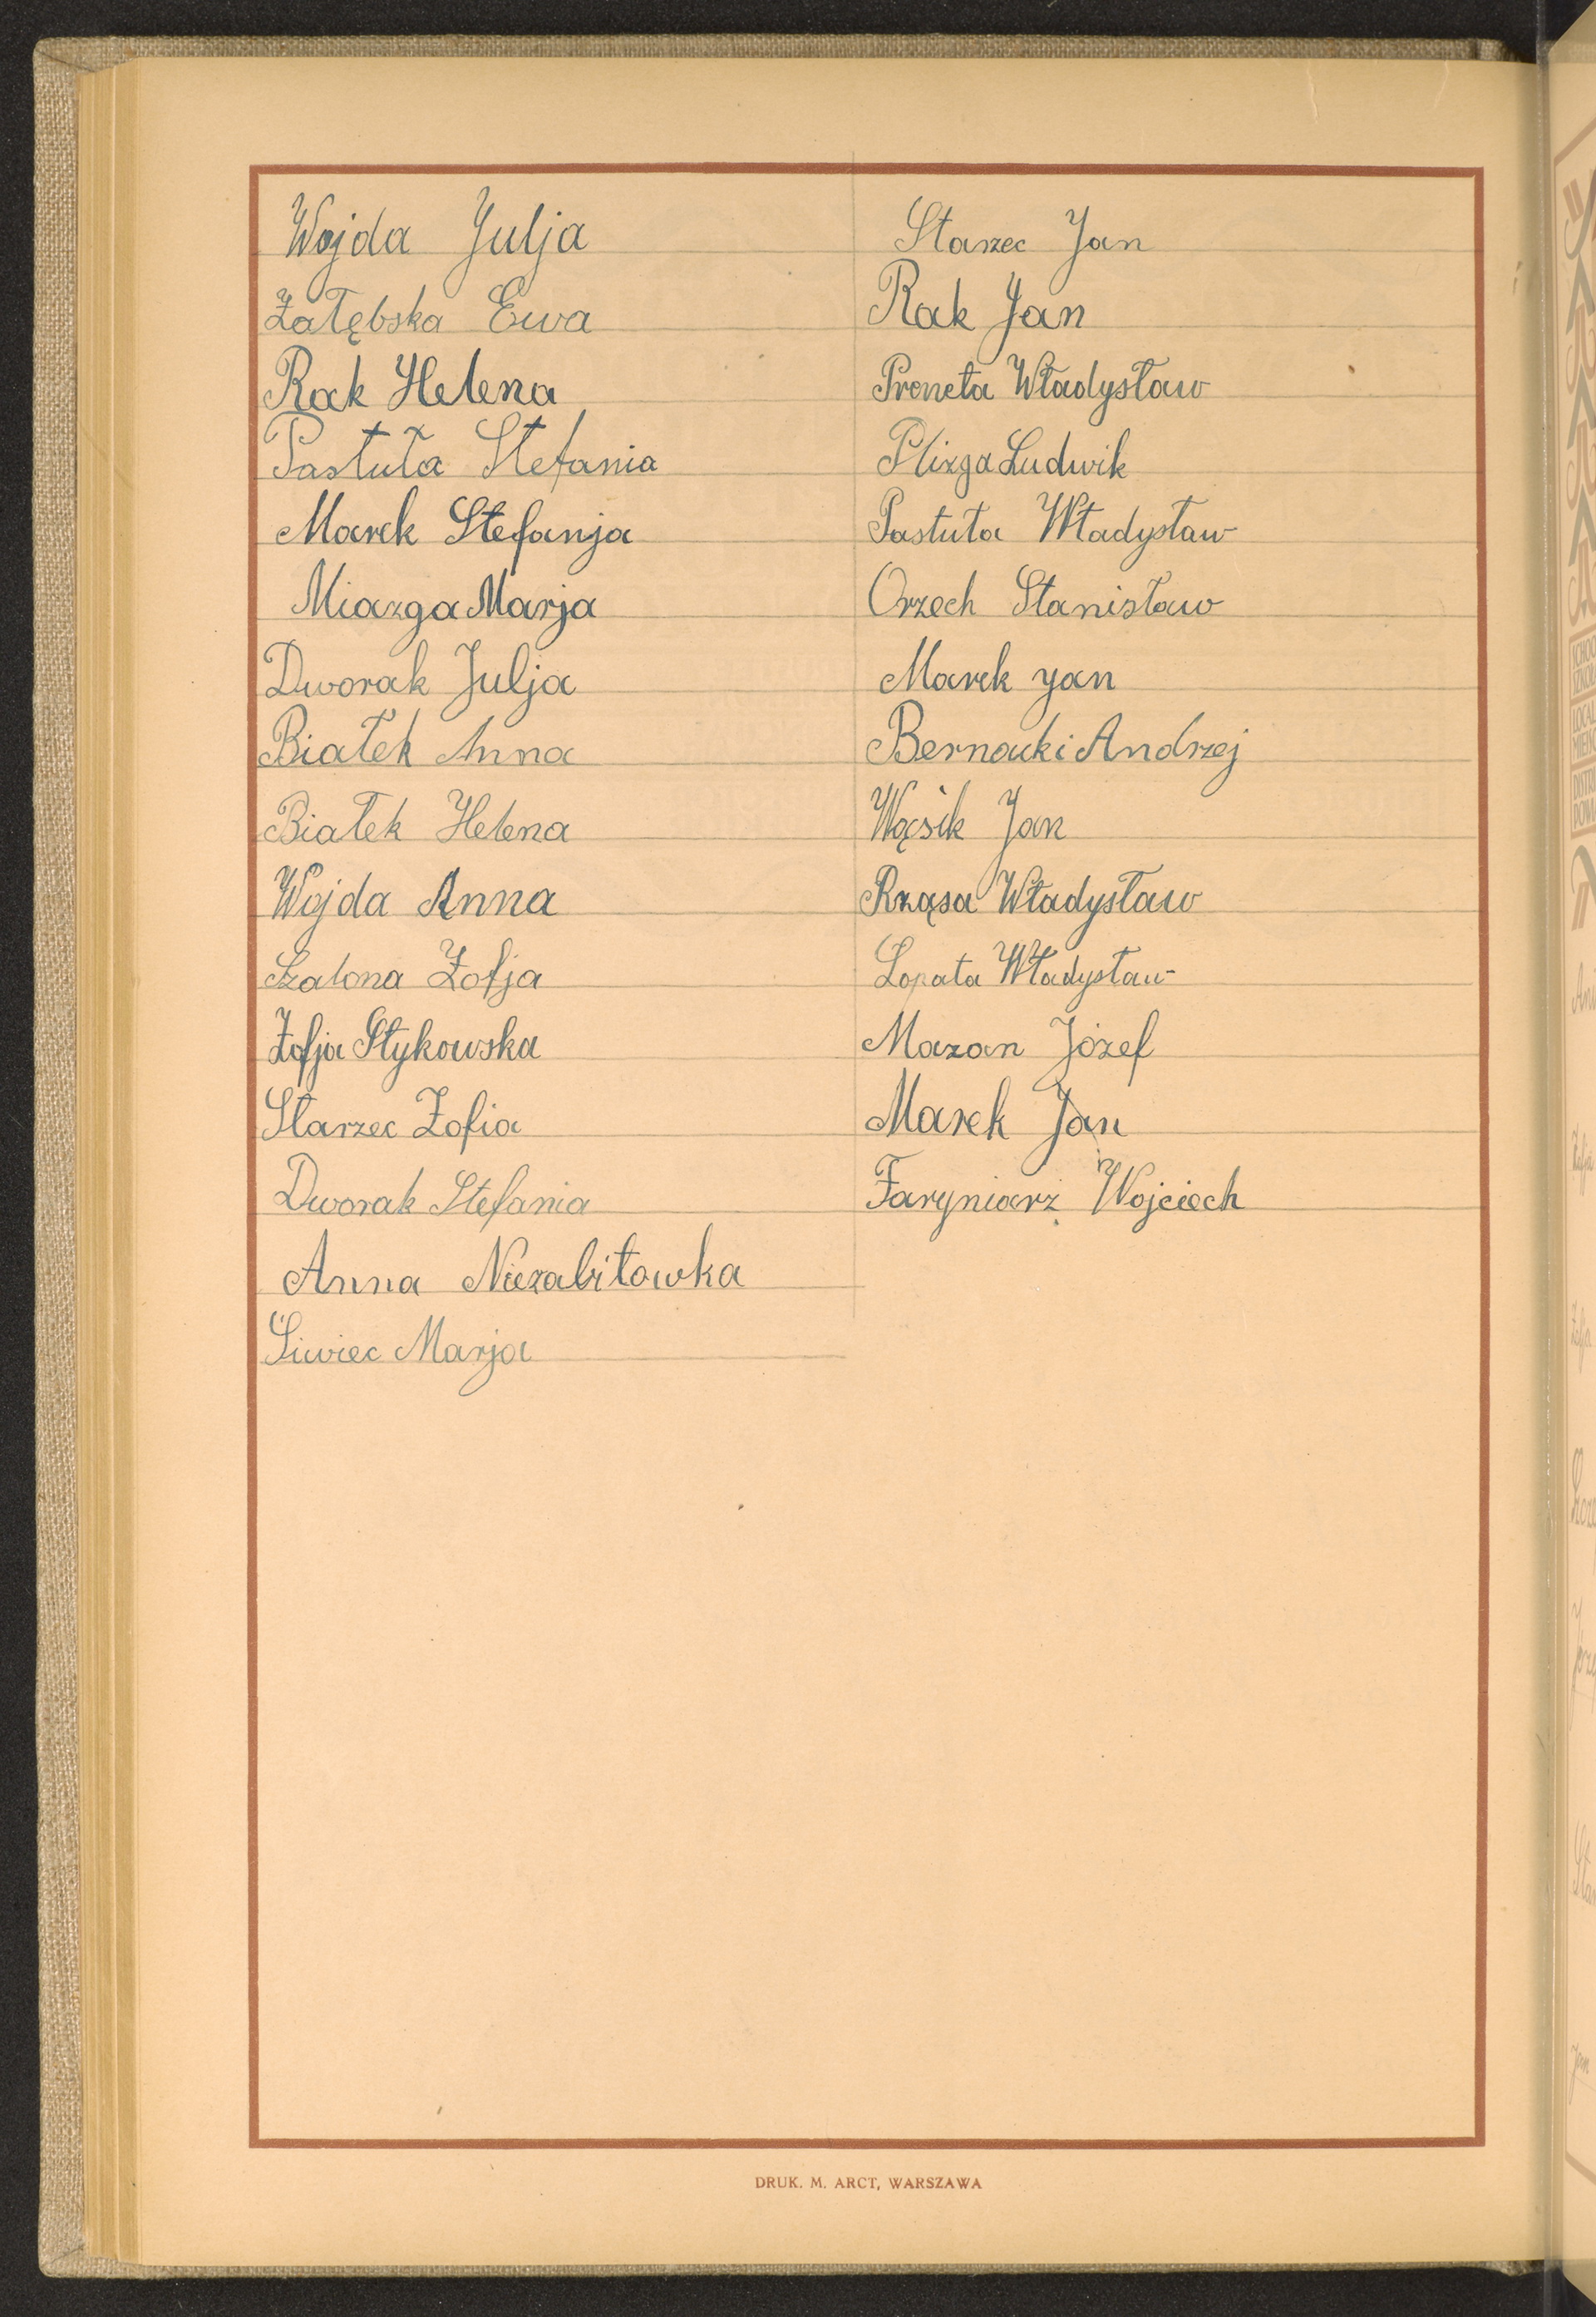 Wojda Julja
Załębska Ewa
Rak Helena
Pastuła Stefania
Marek Stefanja
Miazga Marja
Dworak Julja
Białek Anna
Białek Helena
Wojda Anna
Szalona Zofja
Zofja Stykowska
Starzec Zofia
Dworak Stefania
Anna Niezabitowka
Siwiec Marja
Starzec Jan
Rak Jan
Proneta Władysław
Plizga Ludwik
Pastuła Władysław
Orzech Stanisław
Marek Jan
Bernacki Andrzej
Wąsik Jan
Rząsa Władysław
Łopata Władysław
Mazan Józef
Marek Jan
Faryniarz Wojciech
DRUK. M. ARCT, WARSZAWA